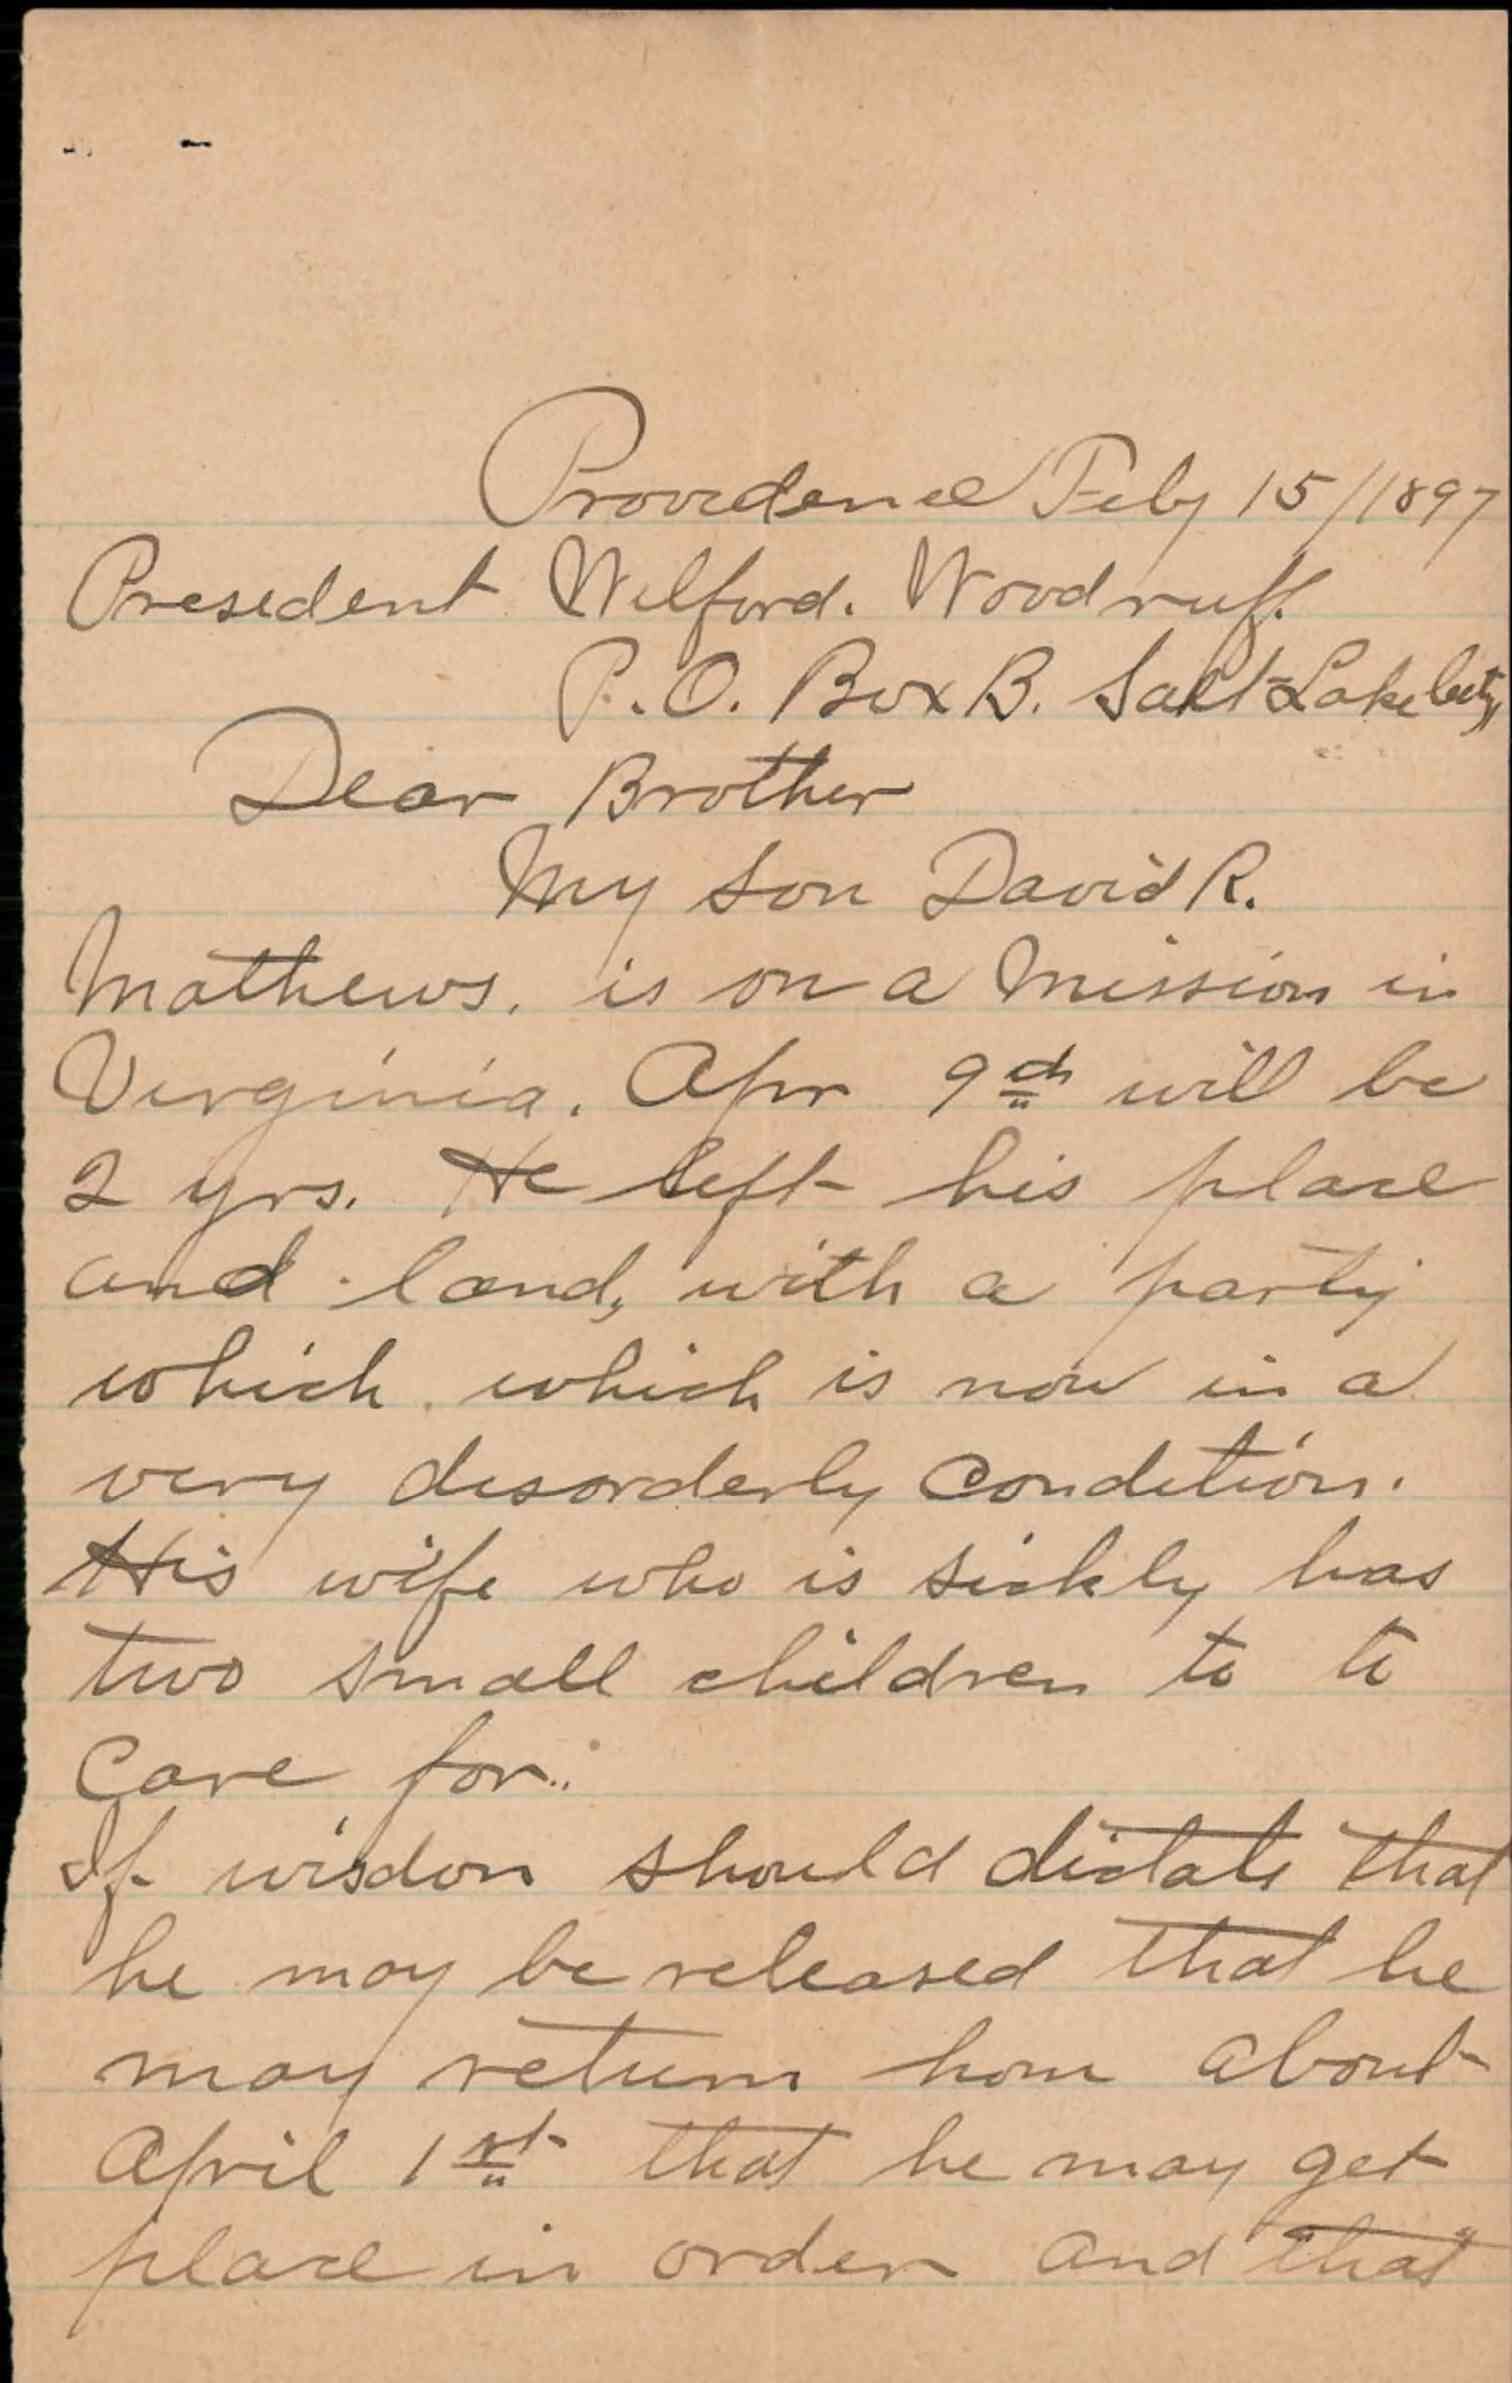 Providence Feby 15/1897
President Wilford. Woodruff.
P.O. Box B. Salt Lake City,
Dear Brother
My son David R.
Mathews, is on a mission in
Virginia. Apr 9th will be
2 yrs. He left his place
and land, with a party
which which is now in a
very disorderly condition.
His wife who is sickly has
two small children to to
Care for..
If wisdon should dictate that
he may be released that he
may return hom about
April 1st that he may get
place in order and "that"